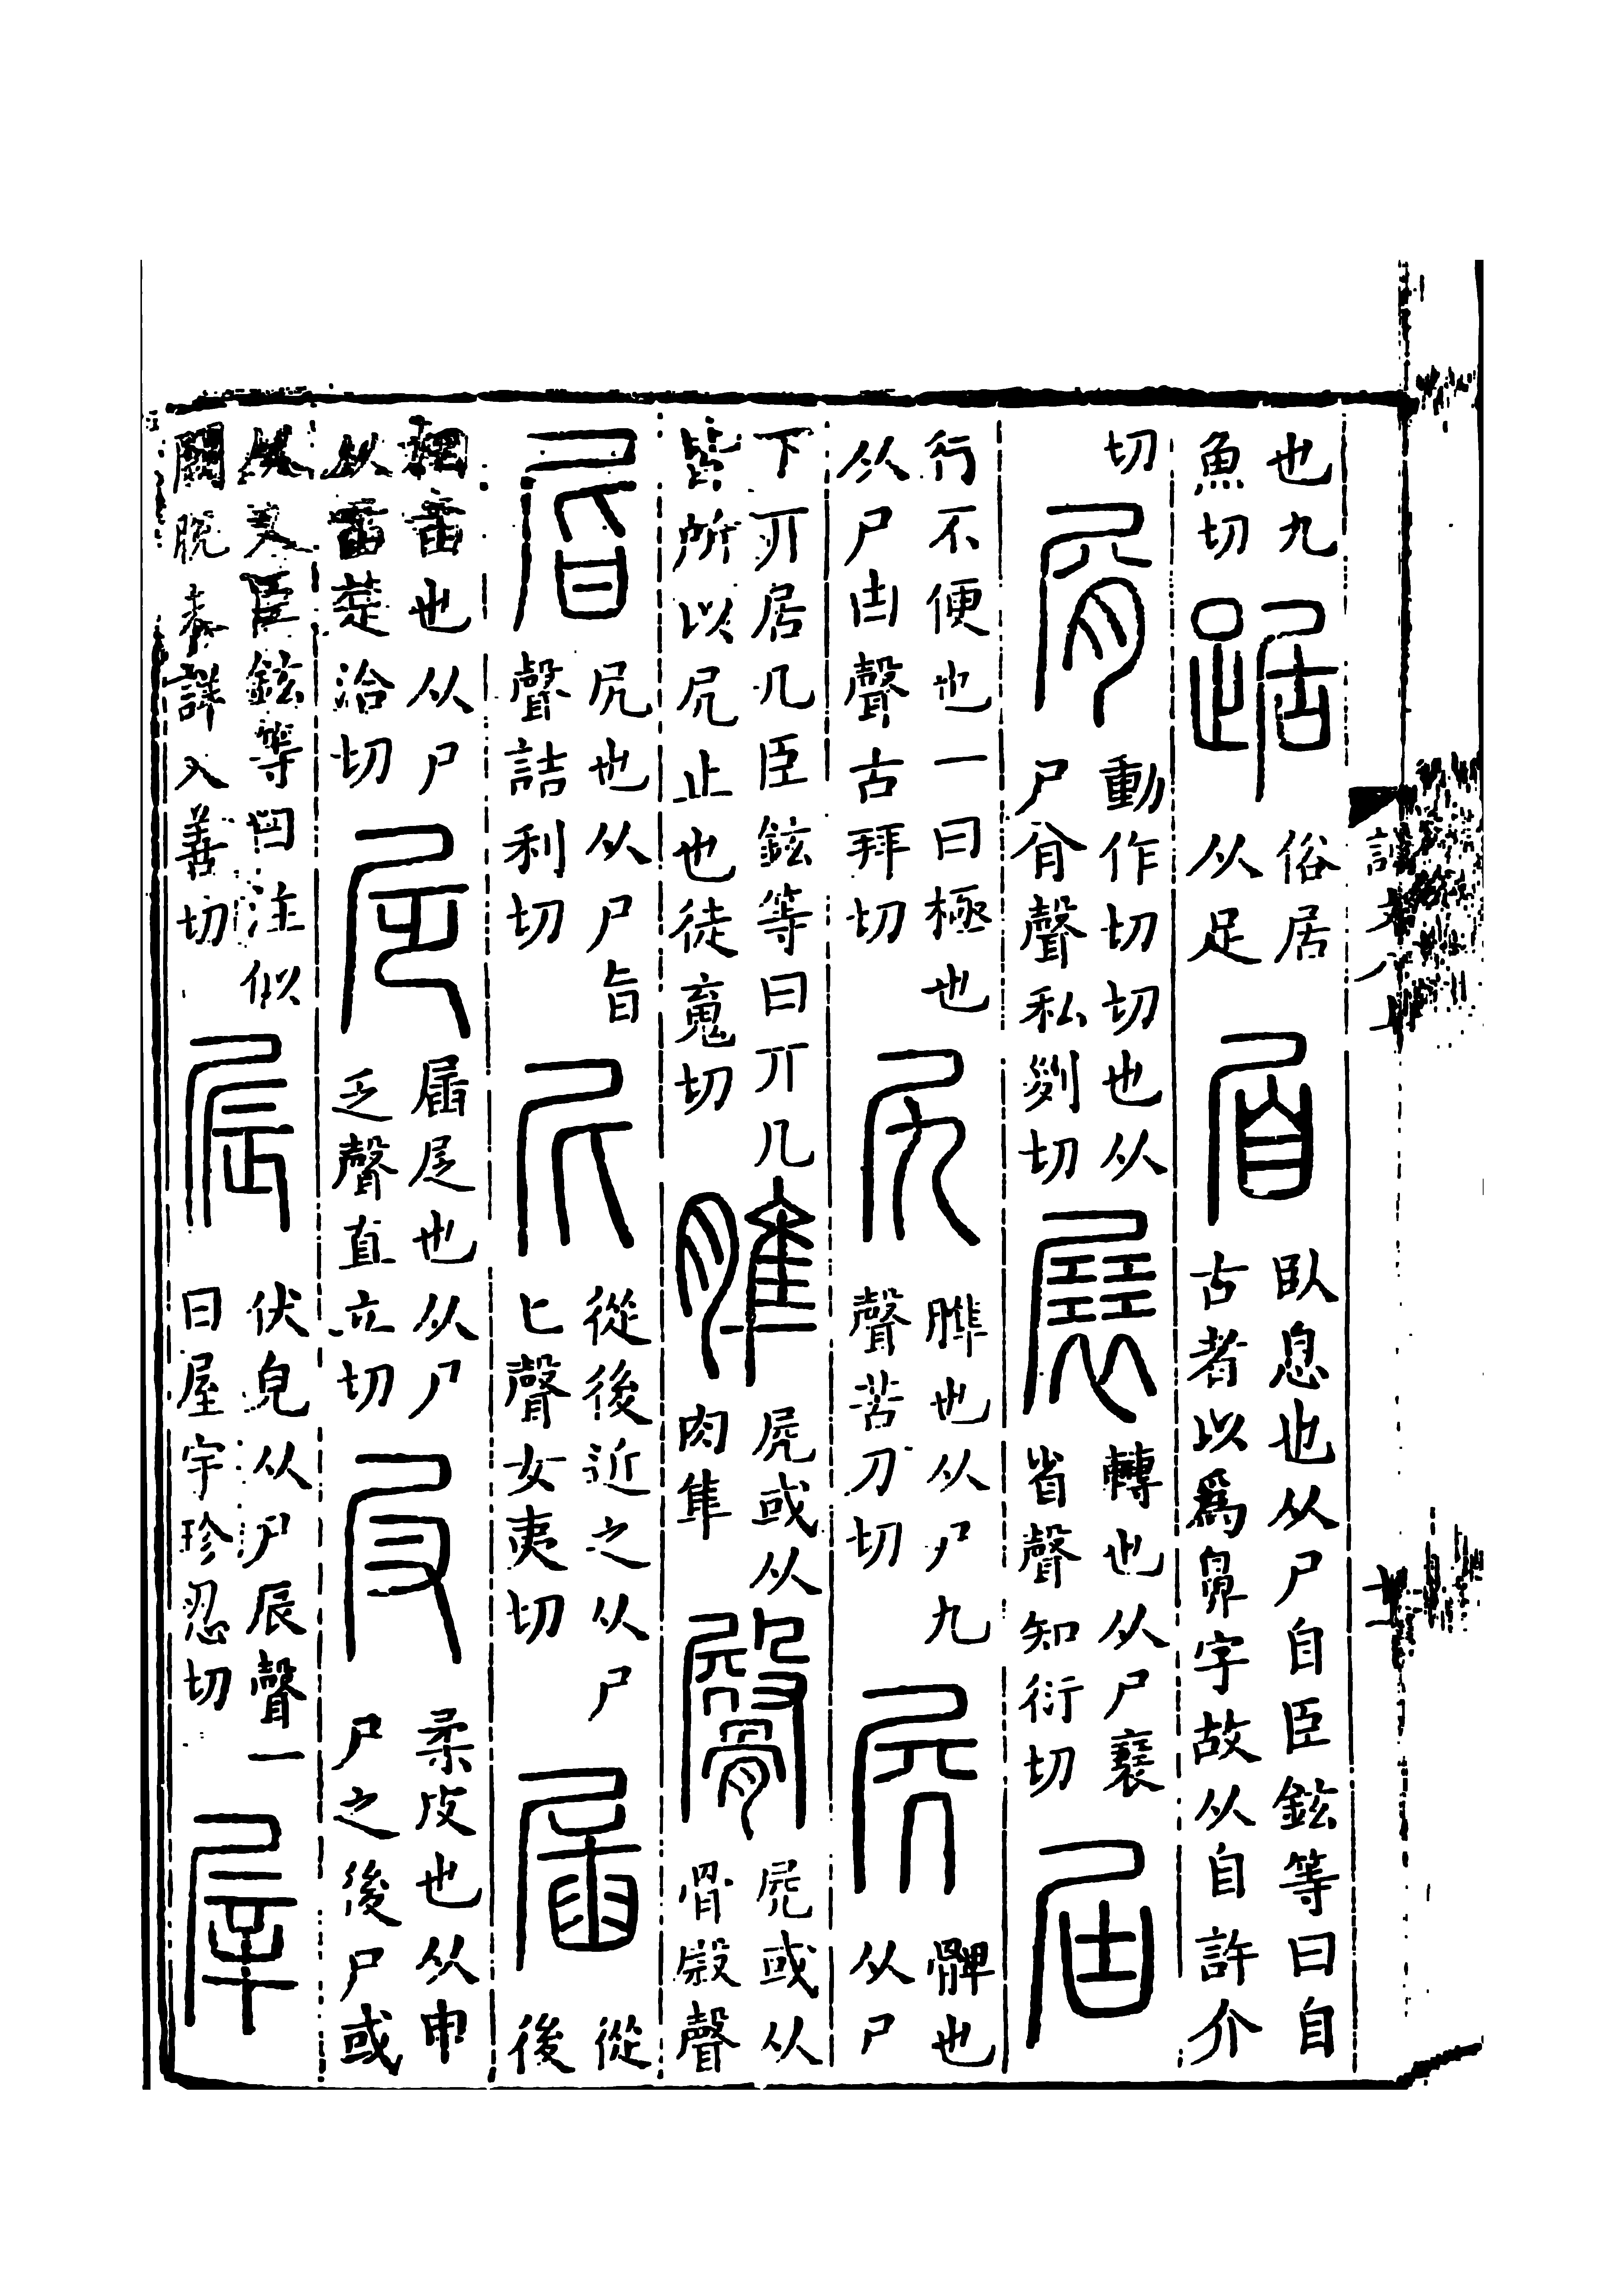 也九
魚切
踞
俗居
从足
眉
臥息也从尸自臣鉉等曰自
古者以爲鼻字故从自許介
切
屑
動作切切也从
尸㕣聲私列切
展
轉也从尸襄
省聲知衍切
屆
行不便也一曰極也
从尸凷聲古拜切
尻
䐁也从尸九
聲苦刀切
髀也
从尸
下丌居几臣鉉等曰丌几
皆所以凥止也徒寬切
脽
㞘或从
肉隼
㞘或从
骨殿聲
㞓
尻也从尸旨
聲詰利切
尼
從後近之从尸
匕聲女夷切
從
後
臿也从尸
从臿楚洽切
屆尾也从尸
乏聲直立切
柔皮也从申
尸之後尸或
从又臣鉉等曰注似
闕脫未詳人善切
伏皃从尸辰聲一
曰屋宇珍忍切
說文八上